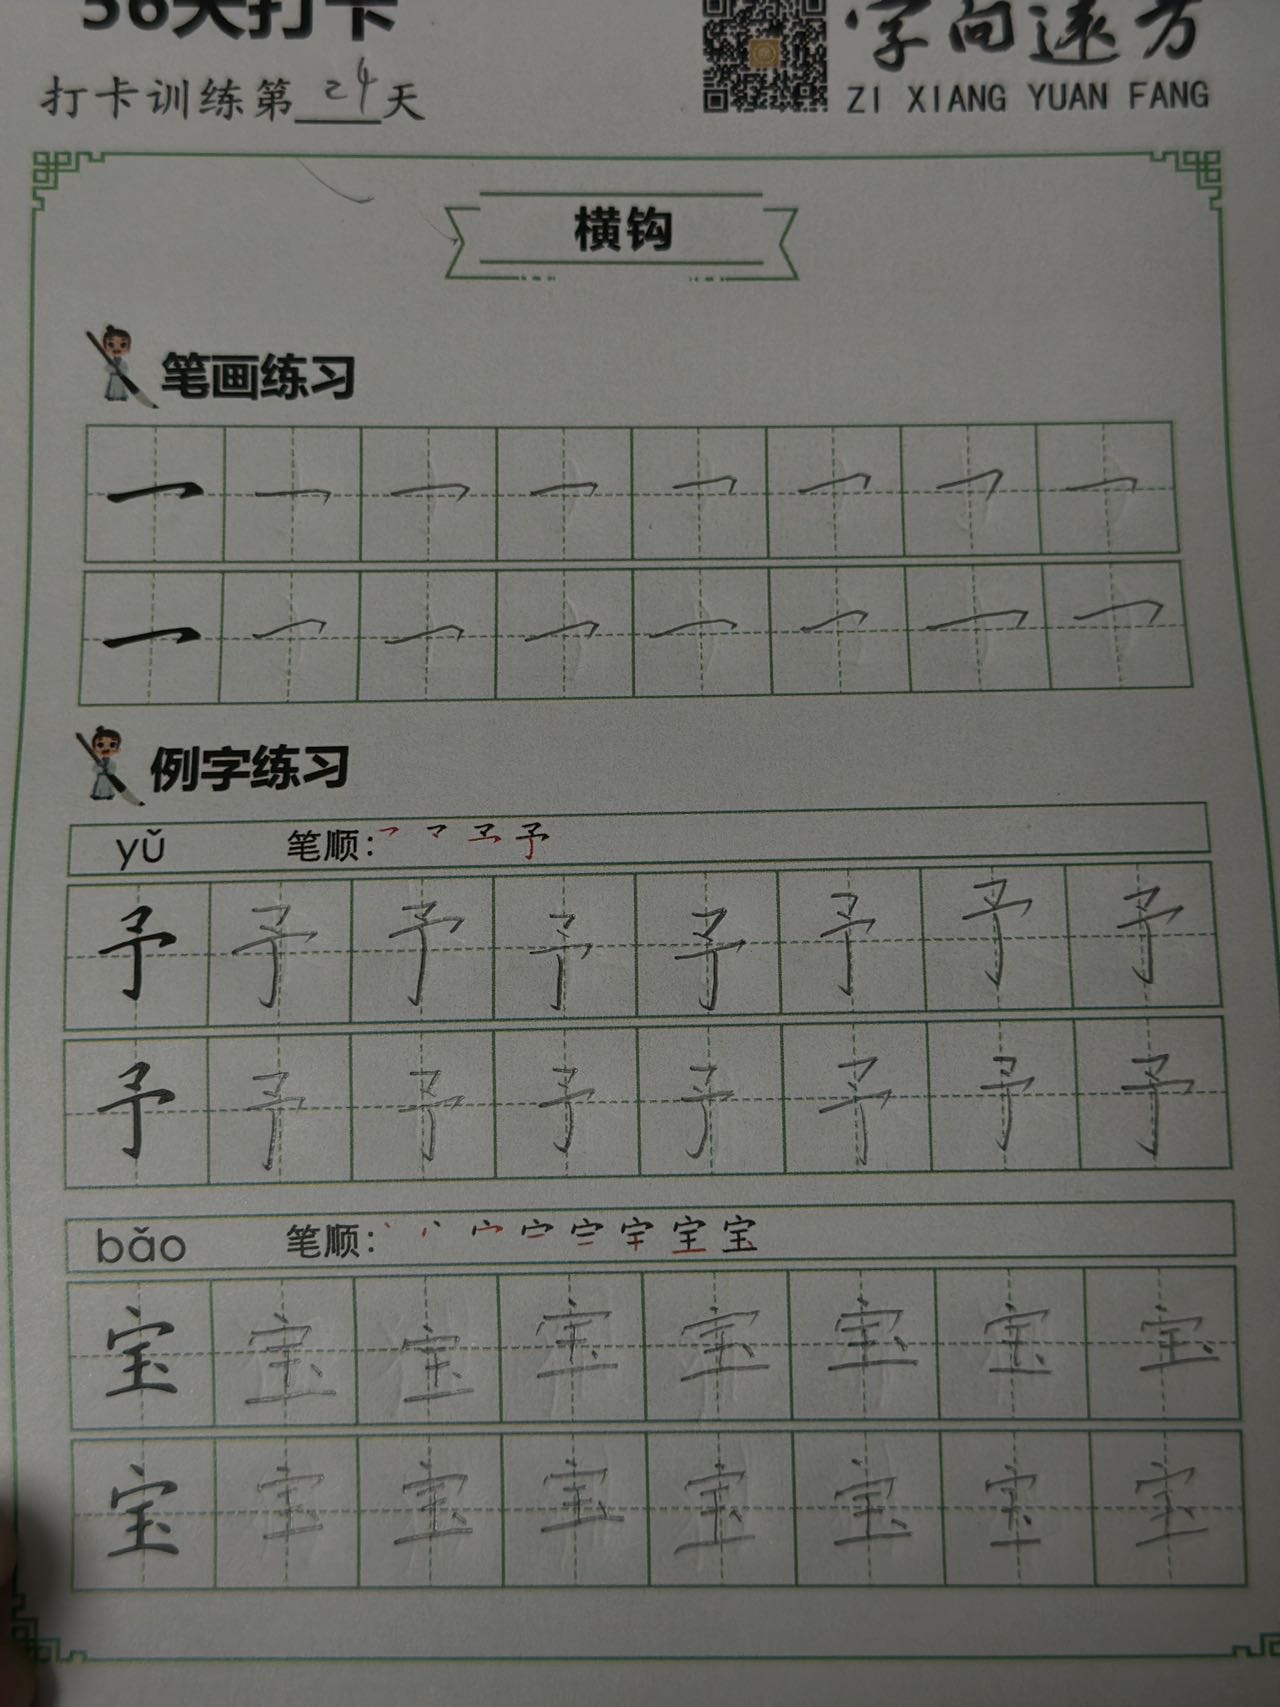 36天打卡
字向远方
打卡训练第24天
ZI XIANG YUAN FANG
横钩
笔画练习
例字练习
yǔ 笔顺：
予 予 予 予 予 予 予 予
予 予 予 予 予 予 予 予
bǎo 笔顺：
宝 宝 宝 宝 宝 宝 宝 宝
宝 宝 宝 宝 宝 宝 宝 宝